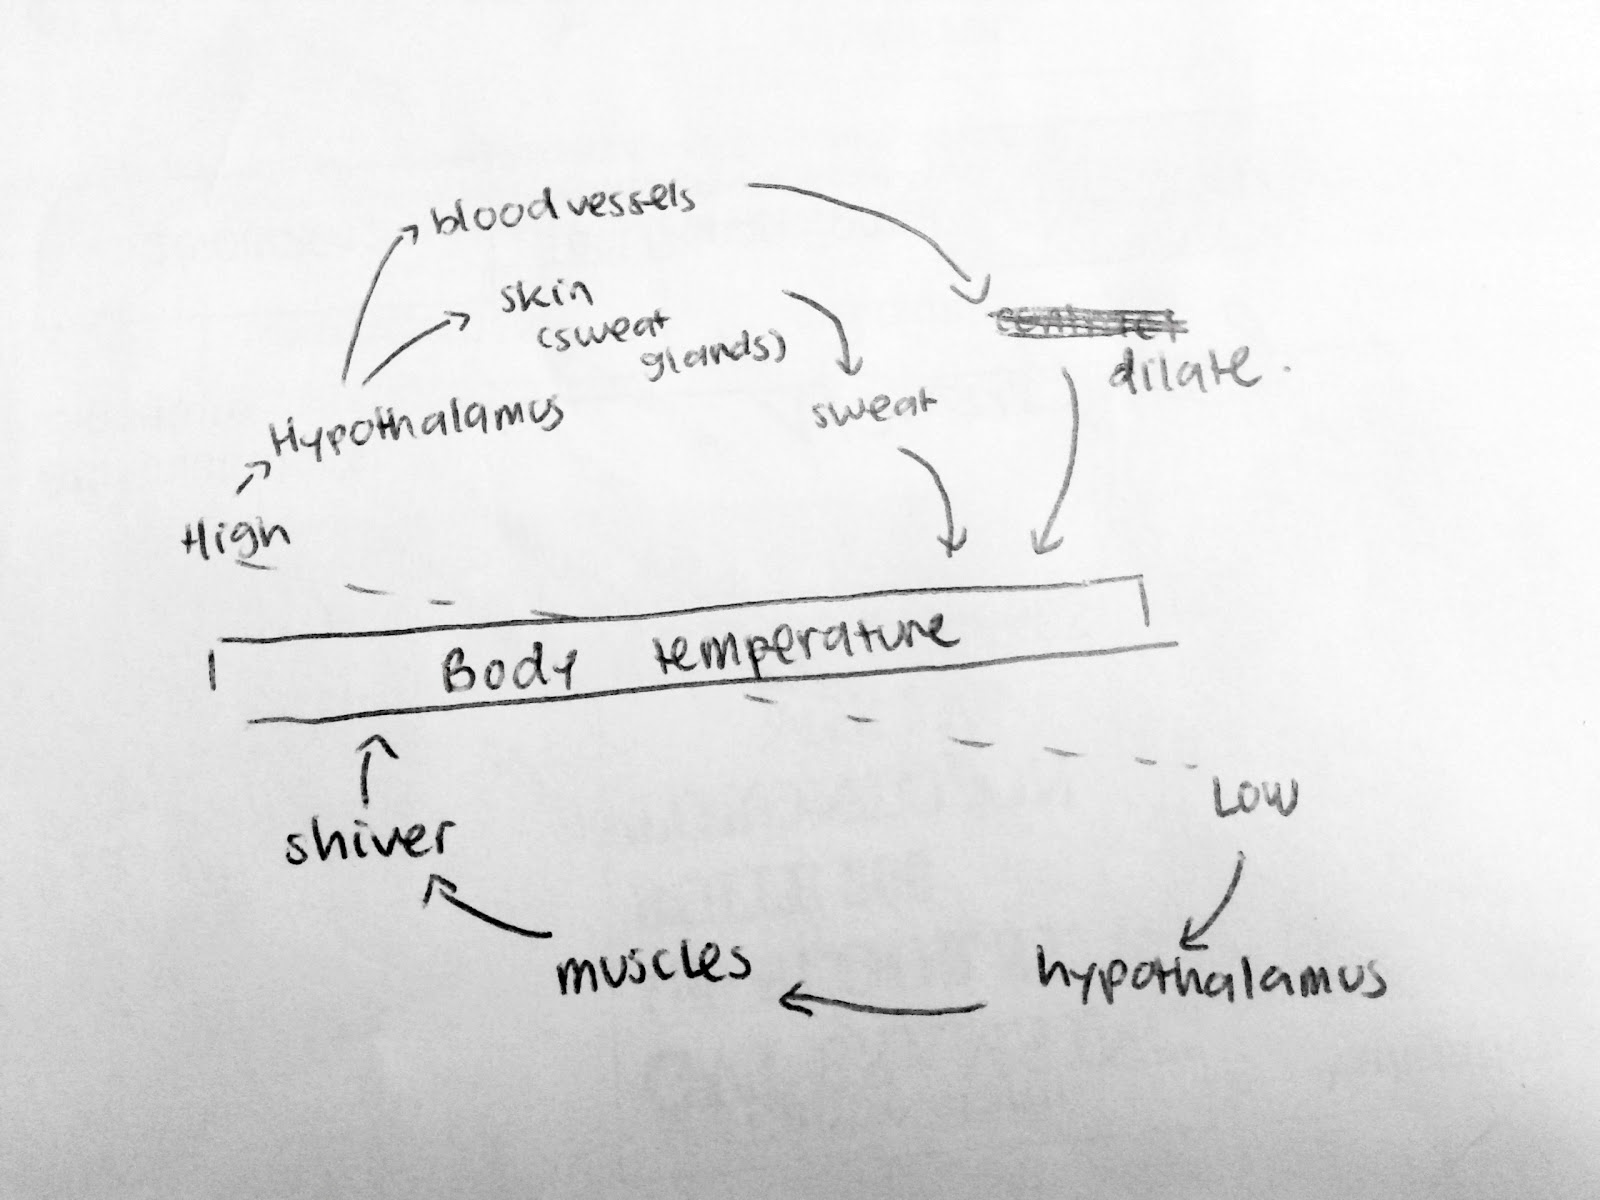 blood vessels
skin
(sweat
glands)
contract
dilate.
sweat
Hypothalamus
High
Body temperature
Low
shiver
muscles
hypothalamus